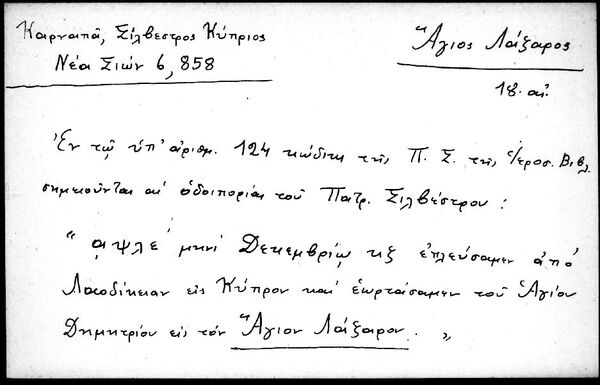 Καρναπᾶ, Σίλβεστρος Κύπριος
Νέα Σιών 6, 858
Ἅγιος Λάζαρος
18. αἰ.
Ἐν τῷ ὑπ' ἀριθμ. 124 κώδικι τῆς Π. Σ. τῆς Ἱεροσ. Βιβλ.
σημειοῦνται αἱ ὁδοιπορίαι τοῦ Πατρ. Σιλβέστρου :
" αψλε΄ μηνί Δεκεμβρίῳ κξ ἐπλεύσαμεν ἀπό
Λαοδίκειαν εἰς Κύπρον καί ἑωρτάσαμεν τοῦ Ἁγίου
Δημητρίου εἰς τόν Ἅγιον Λάζαρον. "